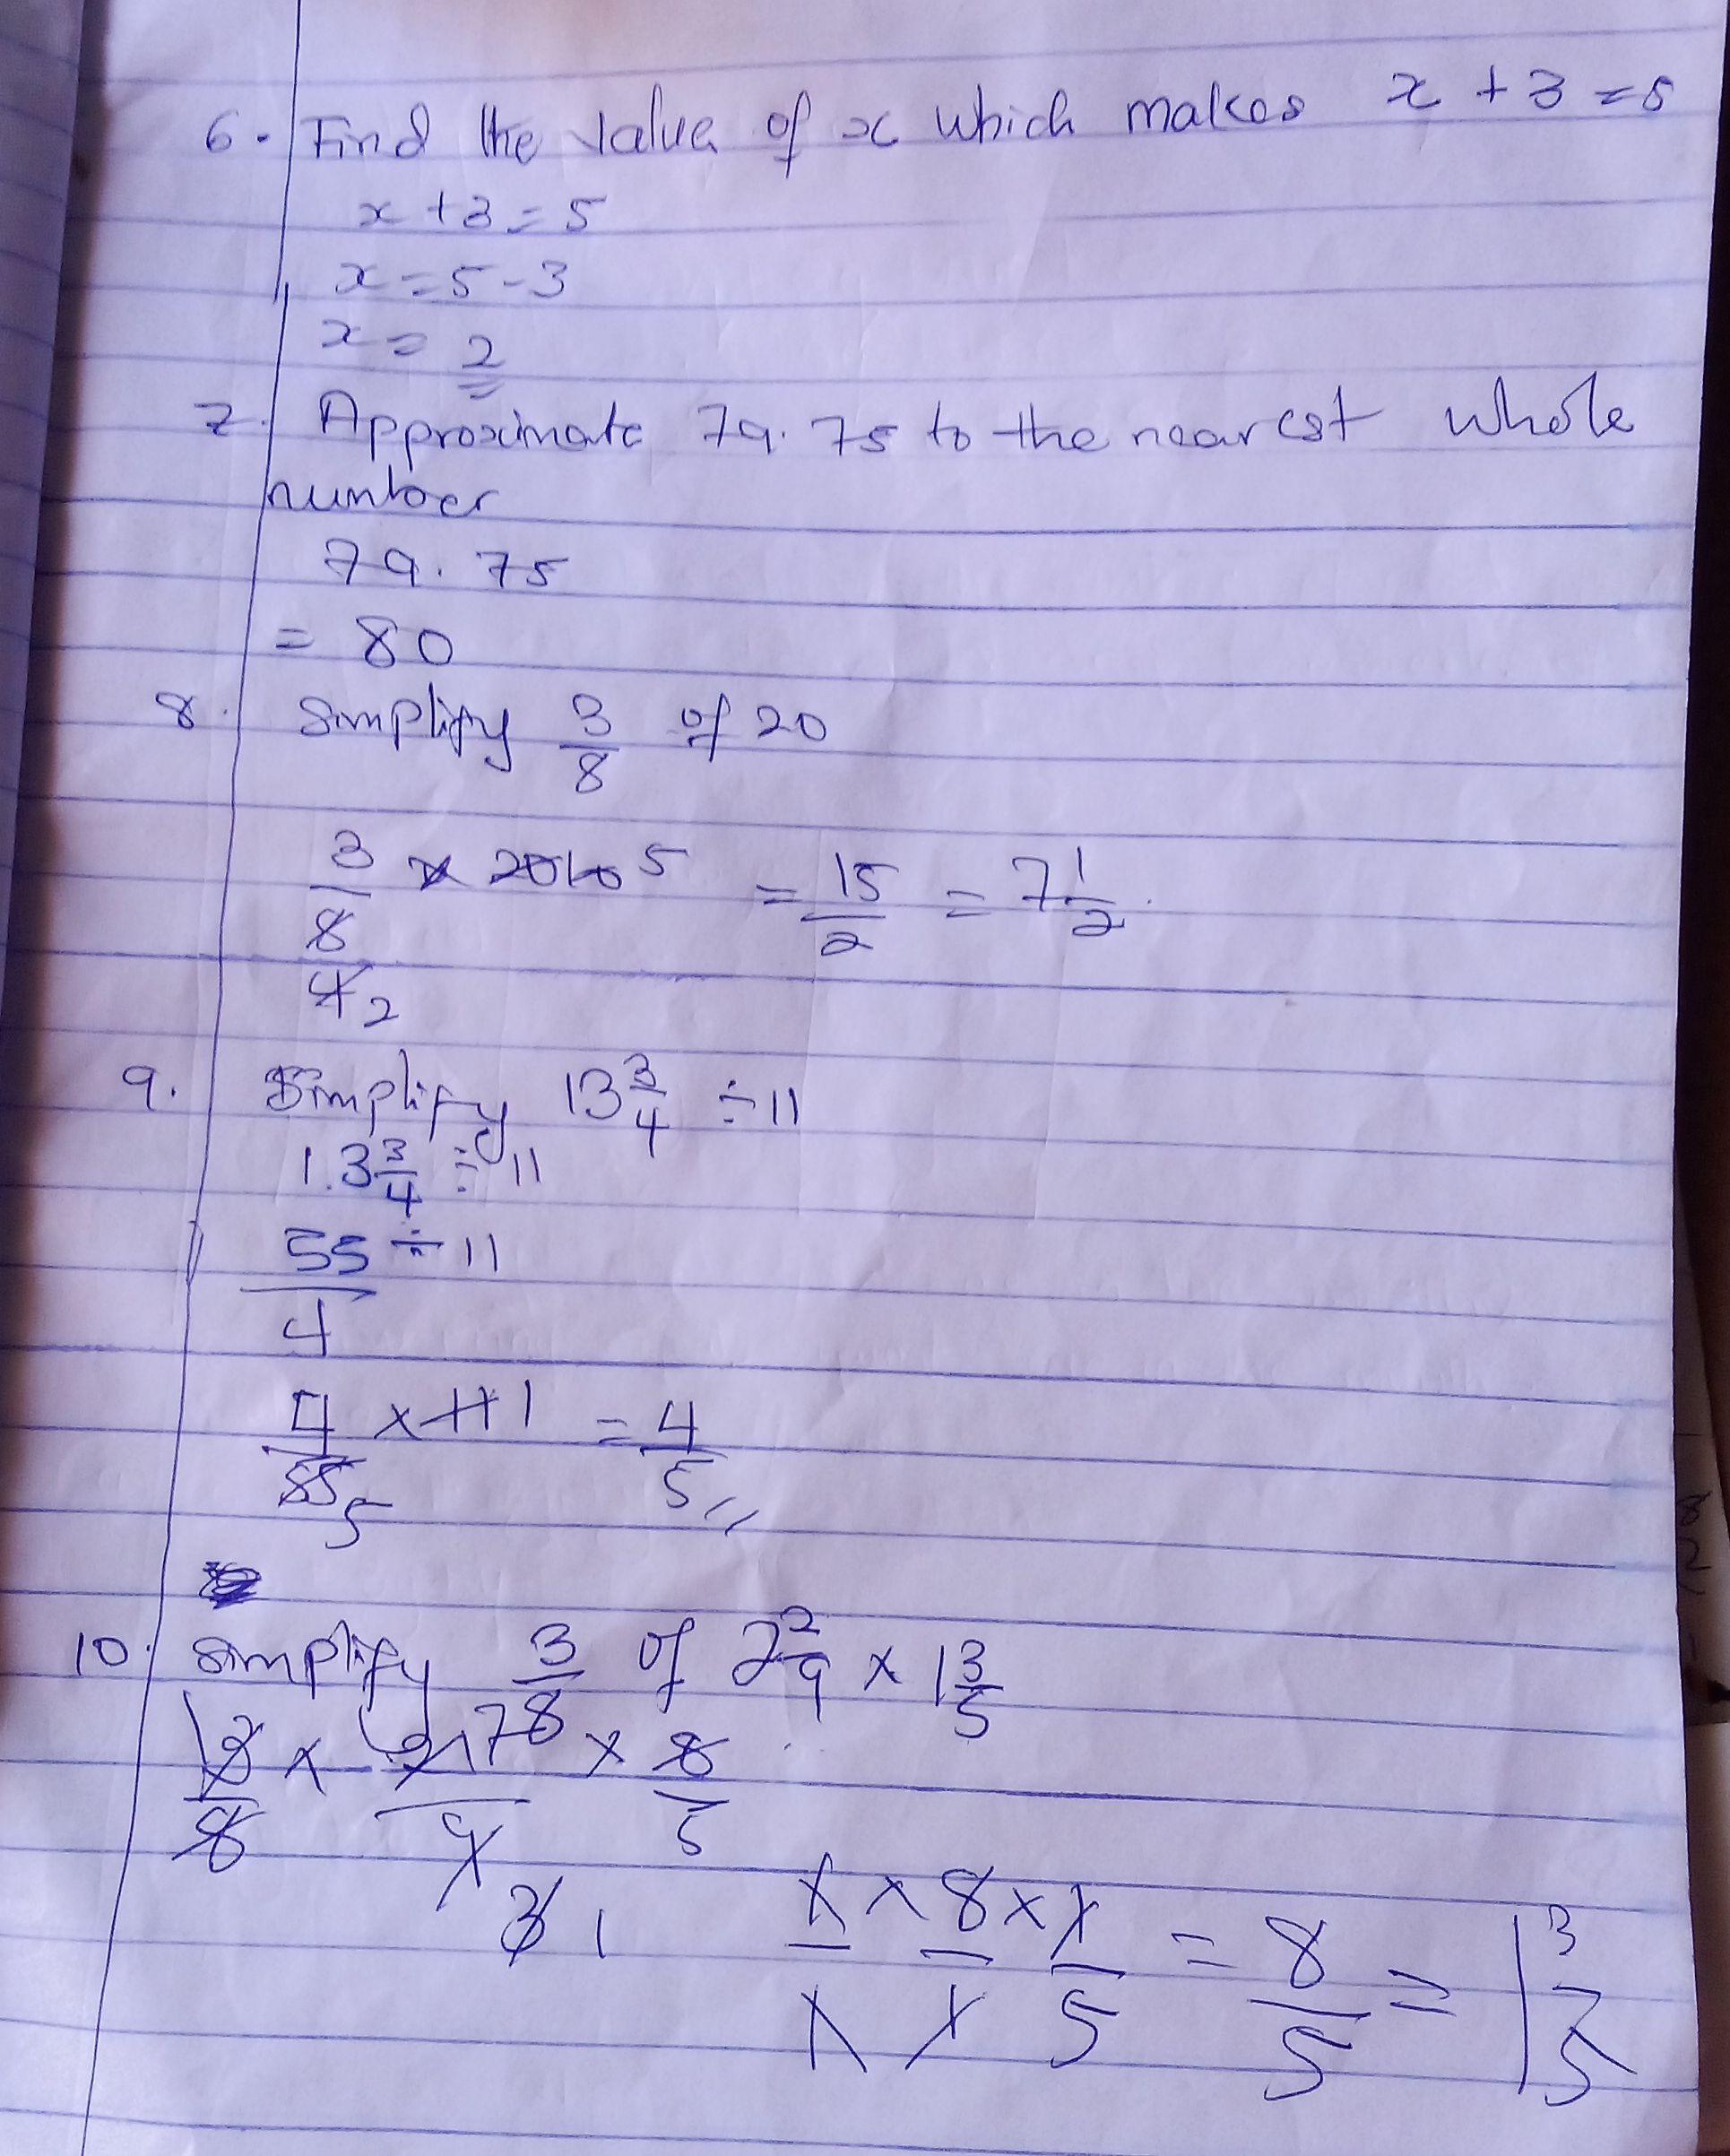 6. Find the value of x which makes x + 3 = 5
x + 3 = 5
x = 5 - 3
x = 2
7. Approximate 79.75 to the nearest whole
number
79.75
= 80
8. Simplify 3/8 of 20
3/8 × 20 10 5 = 15/2 = 7 1/2
4 2
9. Simplify 13 3/4 ÷ 11
1.3 3/4 ÷ 11
55/4 ÷ 11
4/55 5 × 11 1 = 4/5
10. Simplify 3/8 of 2 2/9 × 1 3/5
× 8/5
3 1
1/1 × 8/1 × 1/5 = 8/5 = 1 3/5